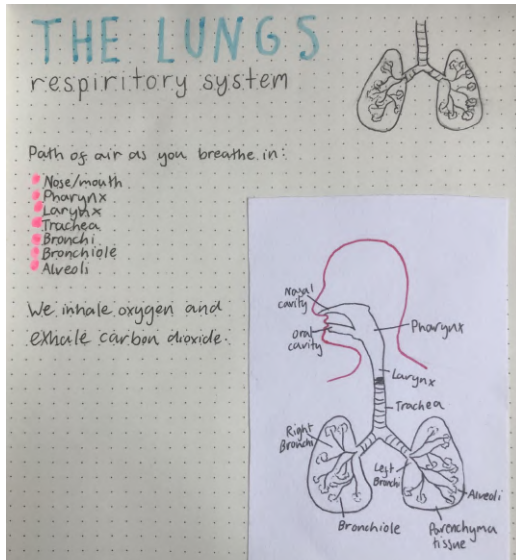 THE LUNGS
respiritory system
Path of air as you breathe in:
Nose/mouth
Pharynx
Larynx
Trachea
Bronchi
Bronchiole
Alveoli
We inhale oxygen and
exhale carbon dioxide.
Nasal
cavity
oral
cavity
Pharynx
Larynx
Trachea
Right
Bronchi
Left
Bronchi
Alveoli
Bronchiole
Parenchyma
tissue